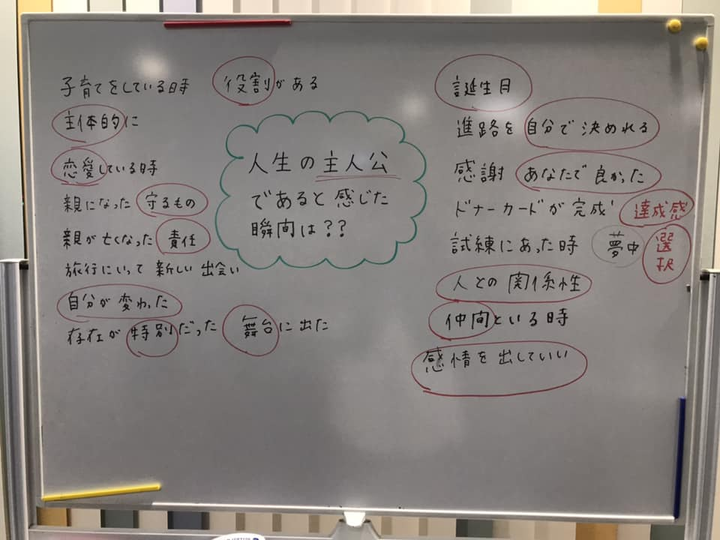 子育てをしている時　役割がある
主体的に
恋愛している時
親になった　守るもの
親が亡くなった　責任
旅行にいって 新しい 出会い
自分が変わった
存在が特別だった　舞台に出た
人生の主人公
であると感じた
瞬間は??
誕生日
進路を自分で決めれる
感謝　あなたで良かった
ドナーカードが完成　達成感
試練にあった時　夢中　選択
人との関係性
仲間といる時
感情を出していい